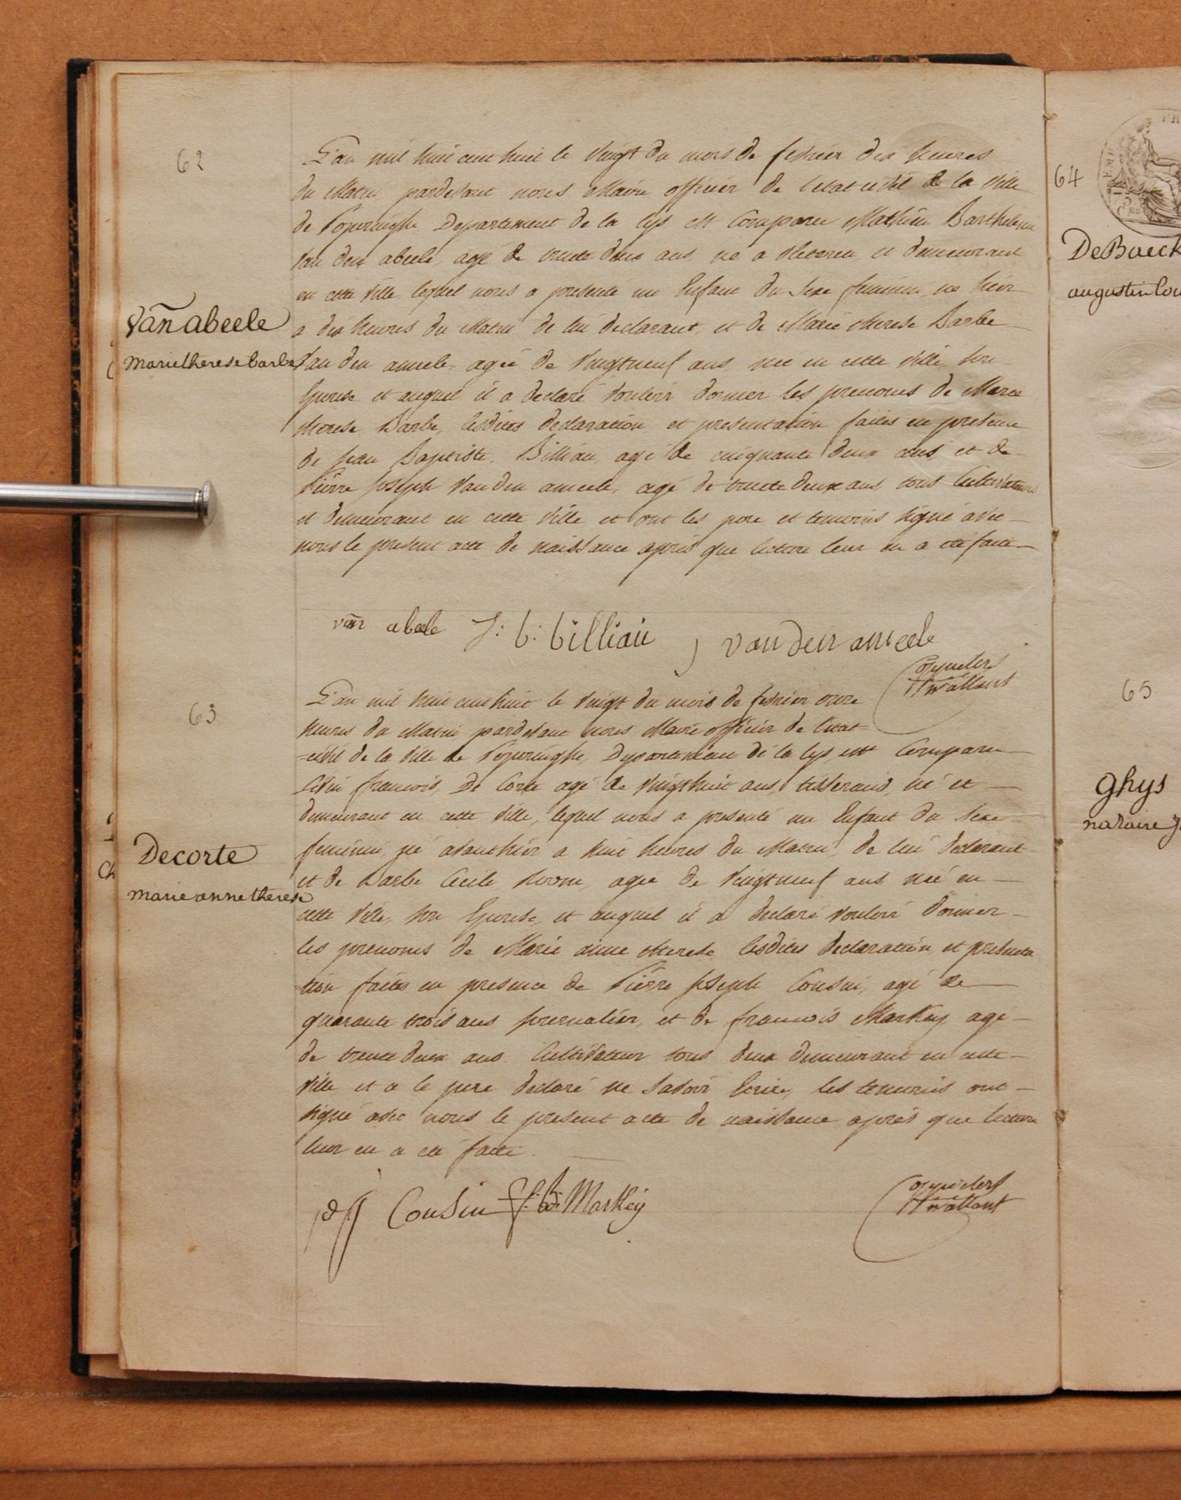 62
L'an mil huit cent huit le vingt du mois de fevrier dix heures
du Matin pardevant nous Maire officier de l'etat civil de la ville
de Poperinghe Departement de la Lys est Comparu Mathieu Barthelemi
Van den abeele agé de trente deux ans né a et demeurant
en cette ville lequel nous a presenté un Enfant du Sexe feminin né hier
a dix heures du Matin de lui declarant et de Marie therese Barbe
Van den ameele agée de vingtneuf ans née en cette ville Son
Epouse et auquel il a declaré vouloir donner les prenoms de Marie
therese Barbe, lesdites declaration et presentation faites en presence
de Jean Baptiste Billiau, agé de cinquante deux ans et de
Pierre Joseph Vanden ameele, agé de trente deux ans tous Cultivateurs
et demeurant en cette ville et ont les pere et temoins signé avec
nous le present acte de naissance après que lecture leur en a été faite
Van abeele
Marie therese barbe
van abeele J: b: billiau vanden ameele
63
L'an mil huit cent huit le vingt du mois de fevrier onze
heures du Matin pardevant nous Maire officier de l'etat
civil de la ville de Poperinghe, Departement de la Lys est Comparu
francois De Corte agé de vingthuit ans tisserand, né et
demeurant en cette ville, lequel nous a presenté un Enfant du Sexe
feminin, né avanthier a huit heures du Matin, de lui declarant
et de Barbe Cecile agée de vingtneuf ans née en
cette ville, Son Epouse, et auquel il a declaré vouloir donner
les prenoms de Marie anne therese lesdites declaration et presenta
tion faites en presence de Pierre Joseph Cousin, agé de
quarante trois ans journalier, et de francois Markey agé
de trente deux ans Cultivateur tous deux demeurant en cette
ville et a le pere declaré ne savoir Ecrire, les temoins ont
signé avec nous le present acte de naissance après que lecture
leur en a été faite
Decorte
marie anne therese
Cousin Markey
64
De Baeck
augustin
65
Ghys